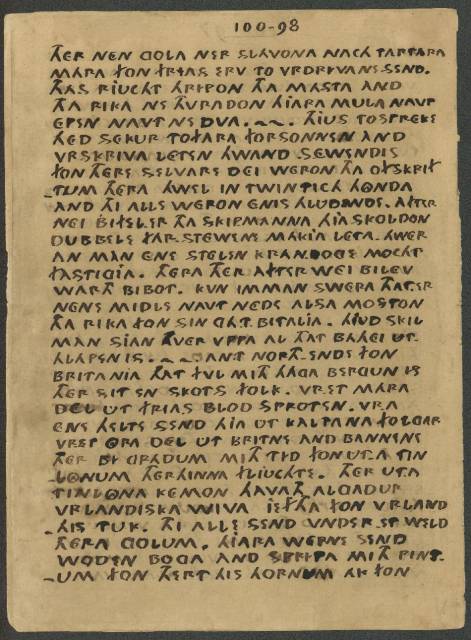 100-98
THER NEN GOLA NER SLAVONA NACH TARTARA
MARA FON FRYAS ERV TO VRDRYVANE SEND.
THAS RIUCHT HRIPON THA MASTA AND
THA RIKA NE THVRADON HIARA MULA NAVT
EPEN NAVT NE DVA. ~~. THIUS TOSPREKE
THED SEKUR TOFARA FORSONNEN AND
VRSKRIVA LETEN HWAND SEWENDIS
FON THERE SELVARE DEI WERON THA OFSKRIF
-TUM THERA HWEL IN TWINTICH HONDA
AND THI ALLE WERON ENIS HLUDANDE. AFTER
NEI BIFEL ER THA SKIPMANNA HIA SKOLDON
DUBBELE FAR-STEWENE MAKIA LETA. HWER
AN MAN ENE STELEN KRANBOGE MOCHT
FASTIGIA. THERA THER AFTER WEI BILEV
WARTH BIBOT. KVN IMMAN SWERA THATER
NENE MIDLE NAVT NEDE ALSA MOSTON
THA RIKA FON SIN GA.T BITALIA. HIUD SKIL
MAN SIAN HVER VPPA AL THAT BAHEI UT-
HLAPEN IS. ~~ ANT NORTH-ENDE FON
BRITANIA THAT FVL MITH HAGA BERGUN IS
THER SIT EN SKOTS FOLK. VREST MARA
DEL UT FRYAS BLOD SPROTEN. VRA
ENE HELTE SEND HIA UT KALTANA FOLGAR
VREST ORA DEL UT BRITNE AND BANNENE
THER BY GRADUM MITH TYD FON UTA TIN
-LONUM THERHINNA FLIUCHTE. THER UTA
TINLONA KEMON HAVATH ALGADUR
VRLANDISKA WIVA IEFTHA FON VRLAND
-HIS TUK. THI ALLE SEND VNDER ET WELD
THERA GOLUM. HIARA WEPNE SEND
WODEN BOGA AND SPRYTA MITH PINT-
-UM FON THERT HIS HORNUM AK FON